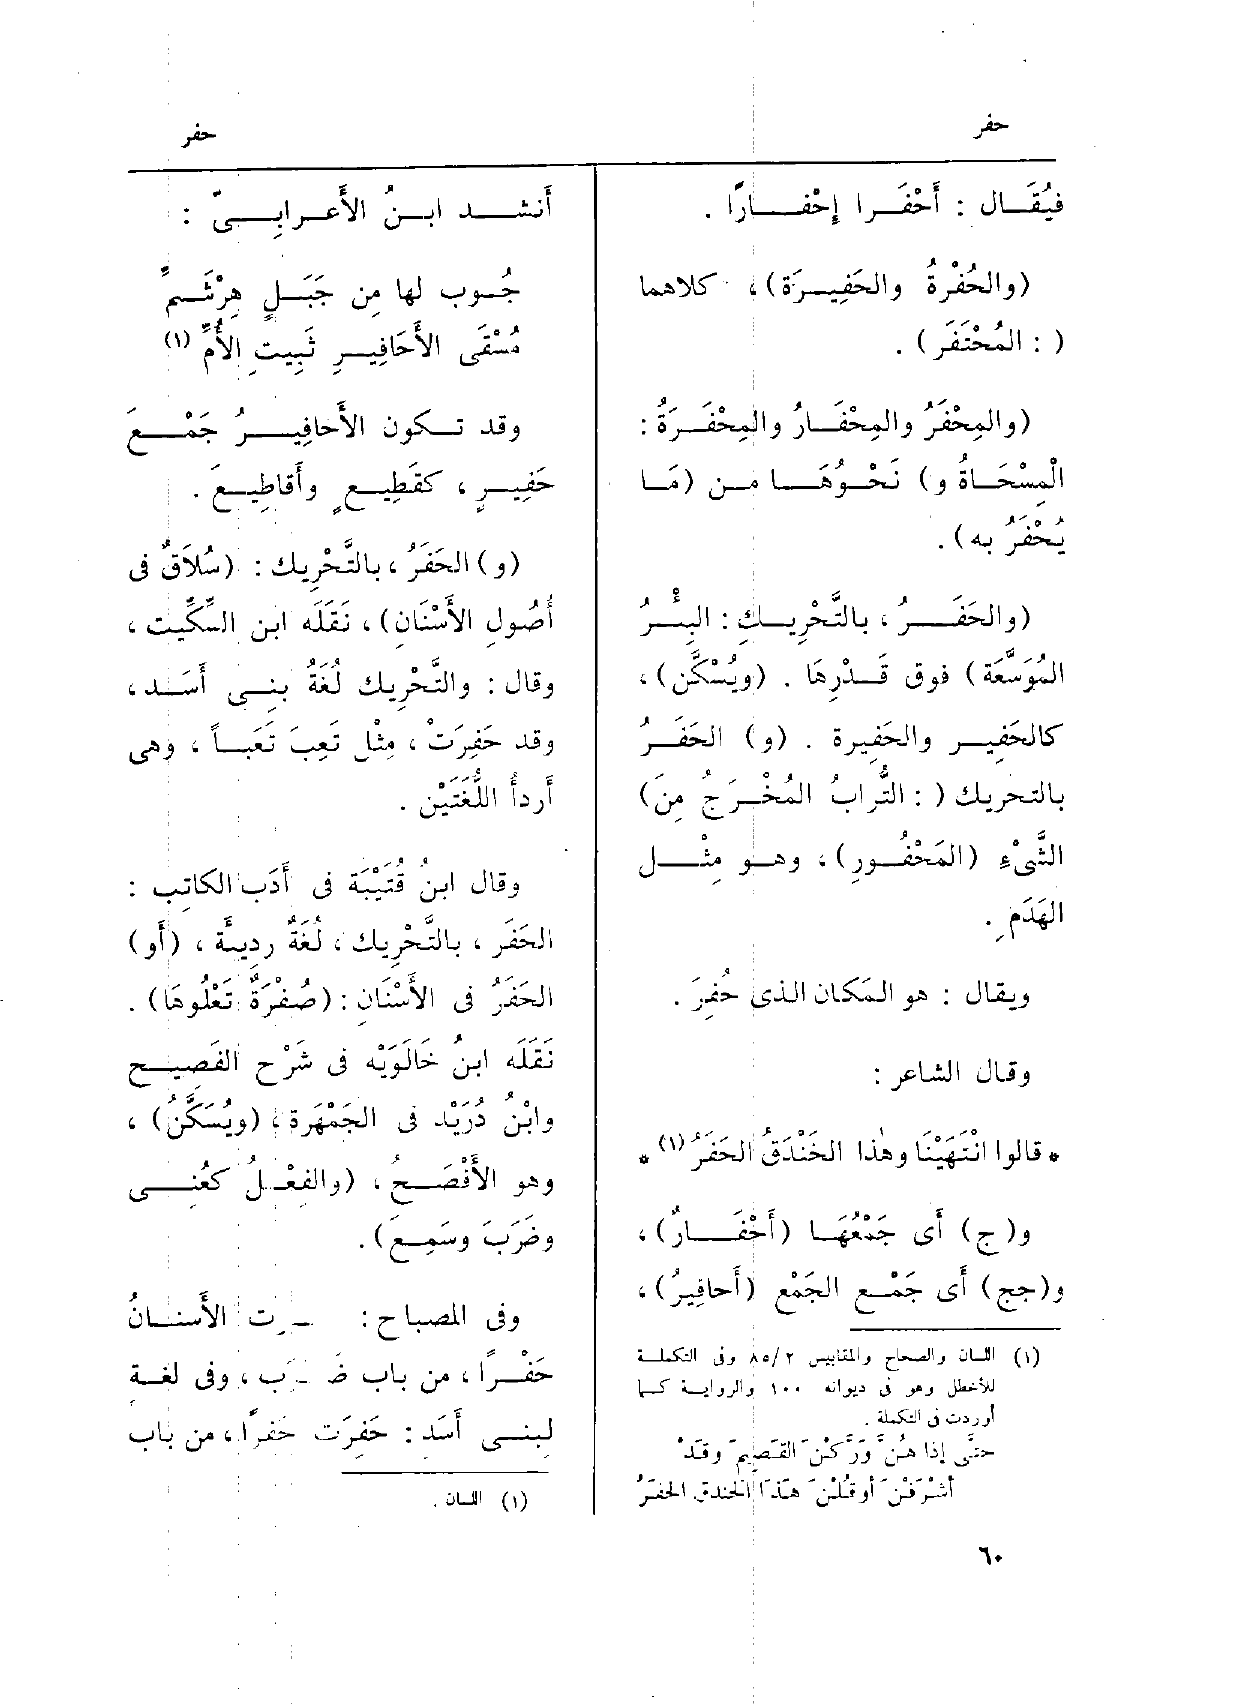 حفر
حفر
فيُقَال : أَحْفَرا إِحْفَارًا .
(والحُفْرةُ والحَفِيرَة) ، كلاهما
( : المُحْتَفَر) .
(والمِحْفَرُ والمِحْفَارُ والمِحْفَرَةُ :
الْمِسْحَاةُ و) نَحْوُهَا من (مَا
يُحْفَرُ به) .
(والحَفَرُ ، بالتَّحْرِيكِ : البِئْرُ
المُوَسَّعَة) فوق قَدْرِهَا . (ويُسْكَّن) ،
كالحَفِيرِ والحَفِيرة . (و) الحَفَرُ
بالتحريك ( : التُّرابُ المُخْرَجُ مِنَ)
الشَّىْءِ (المَحْفُورِ) ، وهو مِثْل
الهَدَمِ .
ويقال : هو المَكان الذى حُفِرَ .
وقال الشاعر :
* قالوا انْتَهَيْنَا وهٰذا الخَنْدَقُ الحَفَرُ (١) *
و(ج) أَى جَمْعُهَا (أَحْفَارٌ) ،
و(جج) أَى جَمْع الجَمْعِ (أَحافِيرُ) ،
(١) اللسان والصحاح والمقاييس ٢/ ٨٥ وفى التكملة
للأخطل وهو فى ديوانه ١٠٠ والرواية كما
أوردت فى التكملة .
حتَّى إذا هُنَّ وَرَّكْنَ القَصِيمَ وقَدْ
أشْرَفْنَ أوقُلْنَ هَذَا الخَندق الحفَرُ
أَنشد ابنُ الأَعرابِىّ :
جُوب لها مِن جَبَلٍ هِرْشَمِّ
مُسْقَى الأَحَافِيرِ ثَبِيتِ الأُمِّ (١)
وقد تكون الأَحافِيرُ جَمْعَ
حَفِيرٍ ، كقَطِيعٍ وأَقاطِيعَ .
(و) الحَفَرُ ، بالتَّحْرِيك : (سُلَاقٌ فى
أُصُولِ الأَسْنَانِ) ، نَقَلَه ابن السِّكِّيت ،
وقال : والتَّحْرِيك لُغَةُ بنِى أَسَد ،
وقد حَفِرَتْ ، مِثْل تَعِبَ تَعَباً ، وهى
أَردأُ اللُّغَتَيْن .
وقال ابنُ قُتَيْبَة فى أَدَب الكاتِب :
الحَفَر ، بالتَّحْرِيك ، لُغَةٌ رديئة ، (أَو)
الحَفَرُ فى الأَسْنَانِ : (صُفْرَةٌ تَعْلُوهَا) .
نَقَلَه ابنُ خَالَوَيْه فى شَرْحِ الفَصِيح
وابْنُ دُرَيْد فى الجَمْهَرة ، (ويُسَكَّنُ) ،
وهو الأَفْصَحُ ، (والفِعْلُ كعُنِى
وضَرَبَ وسَمِعَ) .
وفى المصباح : ت الأَسنانُ
حَفْرًا ، من باب ، وفى لغة
لِبنى أَسَد : حَفِرَت حَفَرًا ، من باب
(١) اللسان .
٦٠